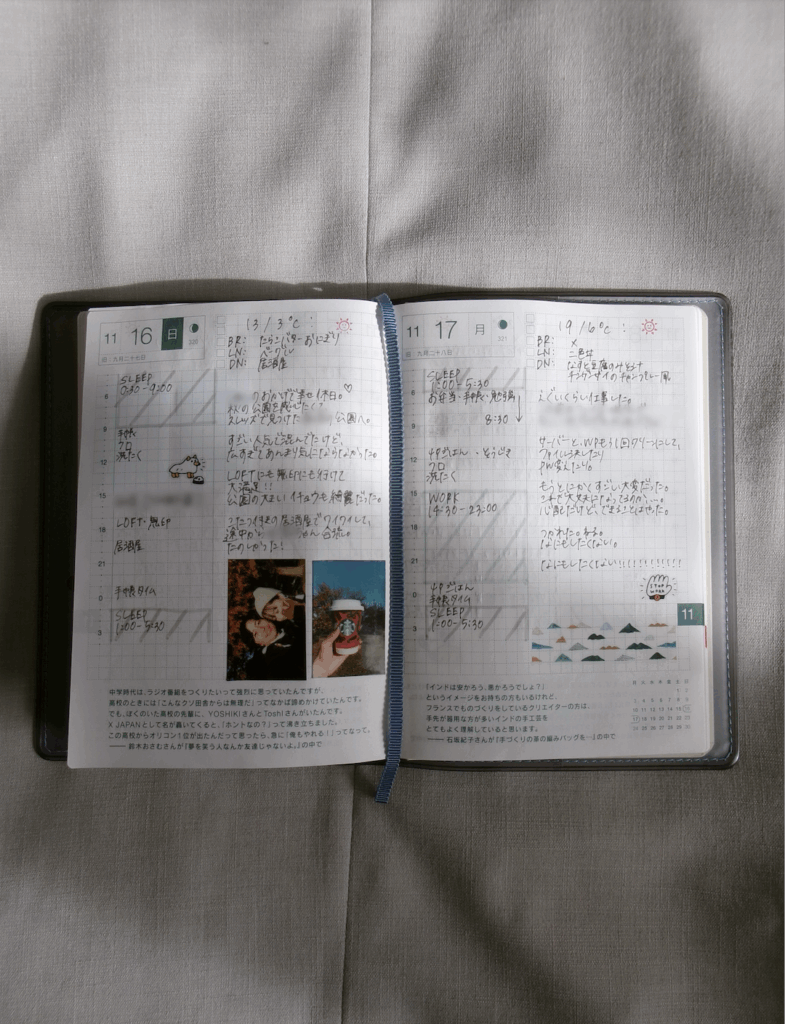 11 16 日
旧:九月二十七日
13/3℃:
BR: たらこバターおにぎり
LN: ベーグル
DN: 居酒屋
SLEEP
0:30-9:00
のおかげで幸せ休日。♡
公園へ。
手帳
クロ
洗たく
すごい人で混んでたけど、
LOFTにも無印にも行けて
大満足!!
公園の大きいイチョウも綺麗だった。
LOFT・無印
居酒屋
こたつ付きの居酒屋でワイワイして、
途中から
合流。
たのしかった!
手帳タイム
SLEEP
1:00-5:30
6
9
12
15
18
21
0
3
中学時代は、ラジオ番組をつくりたいって強烈に思っていたんですが、
高校のときには「こんなクソ田舎からは無理だ」ってなかば諦めかけていたんです。
でも、ぼくのいた高校の先輩に、YOSHIKIさんとToshIさんがいたんです。
X JAPANとして名が轟いてくると、「ホントなの?」って沸き立ちました。
この高校からオリコン1位が出たんだって思ったら、急に「俺もやれる!」ってなって。
—— 鈴木おさむさんが『夢を笑う人なんか友達じゃないよ。』の中で
11 17 月
旧:九月二十八日
321
19/6℃:
BR: ×
LN: 二色丼
DN: なすと豆腐のみそ汁
SLEEP
1:00-5:30
お弁当・手帳・勉強
8:30
えぐいくらい仕事した。
夕ごはん
クロ
洗たく
サーバーと、WPもう1回クリーンにして、
ファイル
PW変えたり。
WORK
14:30-23:00
もうとにかくすごい大変だった。
心配だけど、できることはやった。
つかれた。ねる。
なにもしたくない。
なにもしたくない!!!!!!!!!!!!
夕ごはん
手帳タイム
SLEEP
1:00-5:30
STOP
WORK
6
9
12
15
18
21
0
3
11
「インドは安かろう、悪かろうでしょ?」
というイメージをお持ちの方もいるけれど、
フランスでものづくりをしているクリエイターの方は、
手先が器用な方が多いインドの手工芸を
とてもよく理解していると思います。
—— 石坂紀子さんが『手づくりの革の編みバッグを…』の中で